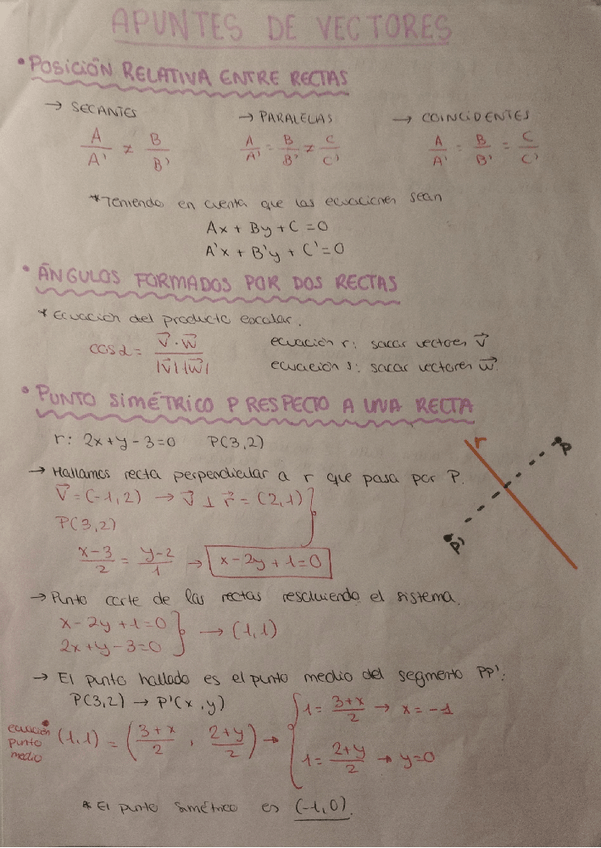 APUNTES DE VECTORES
• POSICIÓN RELATIVA ENTRE RECTAS
→ SECANTES → PARALELAS → COINCIDENTES
A/A' ≠ B/B' A/A' = B/B' ≠ C/C' A/A' = B/B' = C/C'
*Teniendo en cuenta que las ecuaciones sean
Ax + By + C = 0
A'x + B'y + C' = 0
• ÁNGULOS FORMADOS POR DOS RECTAS
* Ecuación del producto escalar.
cos α = v⃗ · w⃗ / |v⃗| |w⃗| ecuación r: sacar vectores v⃗
ecuación s: sacar vectores w⃗
• PUNTO SIMÉTRICO P RESPECTO A UNA RECTA
r: 2x+y-3=0 P(3,2)
r
P
P'
→ Hallamos recta perpendicular a r que pasa por P.
v⃗ = (-1,2) → v⃗ ⊥ r⃗ = (2,1)
P(3,2)
x-3/2 = y-2/1 → x-2y+1=0
→ Punto corte de las rectas resolviendo el sistema.
x-2y+1=0
2x+y-3=0 } → (1,1)
→ El punto hallado es el punto medio del segmento PP'.
P(3,2) → P'(x,y)
ecuación punto medio (1,1) = (3+x/2 , 2+y/2) → { 1 = 3+x/2 → x=-1
1 = 2+y/2 → y=0
* El punto simétrico es (-1,0).